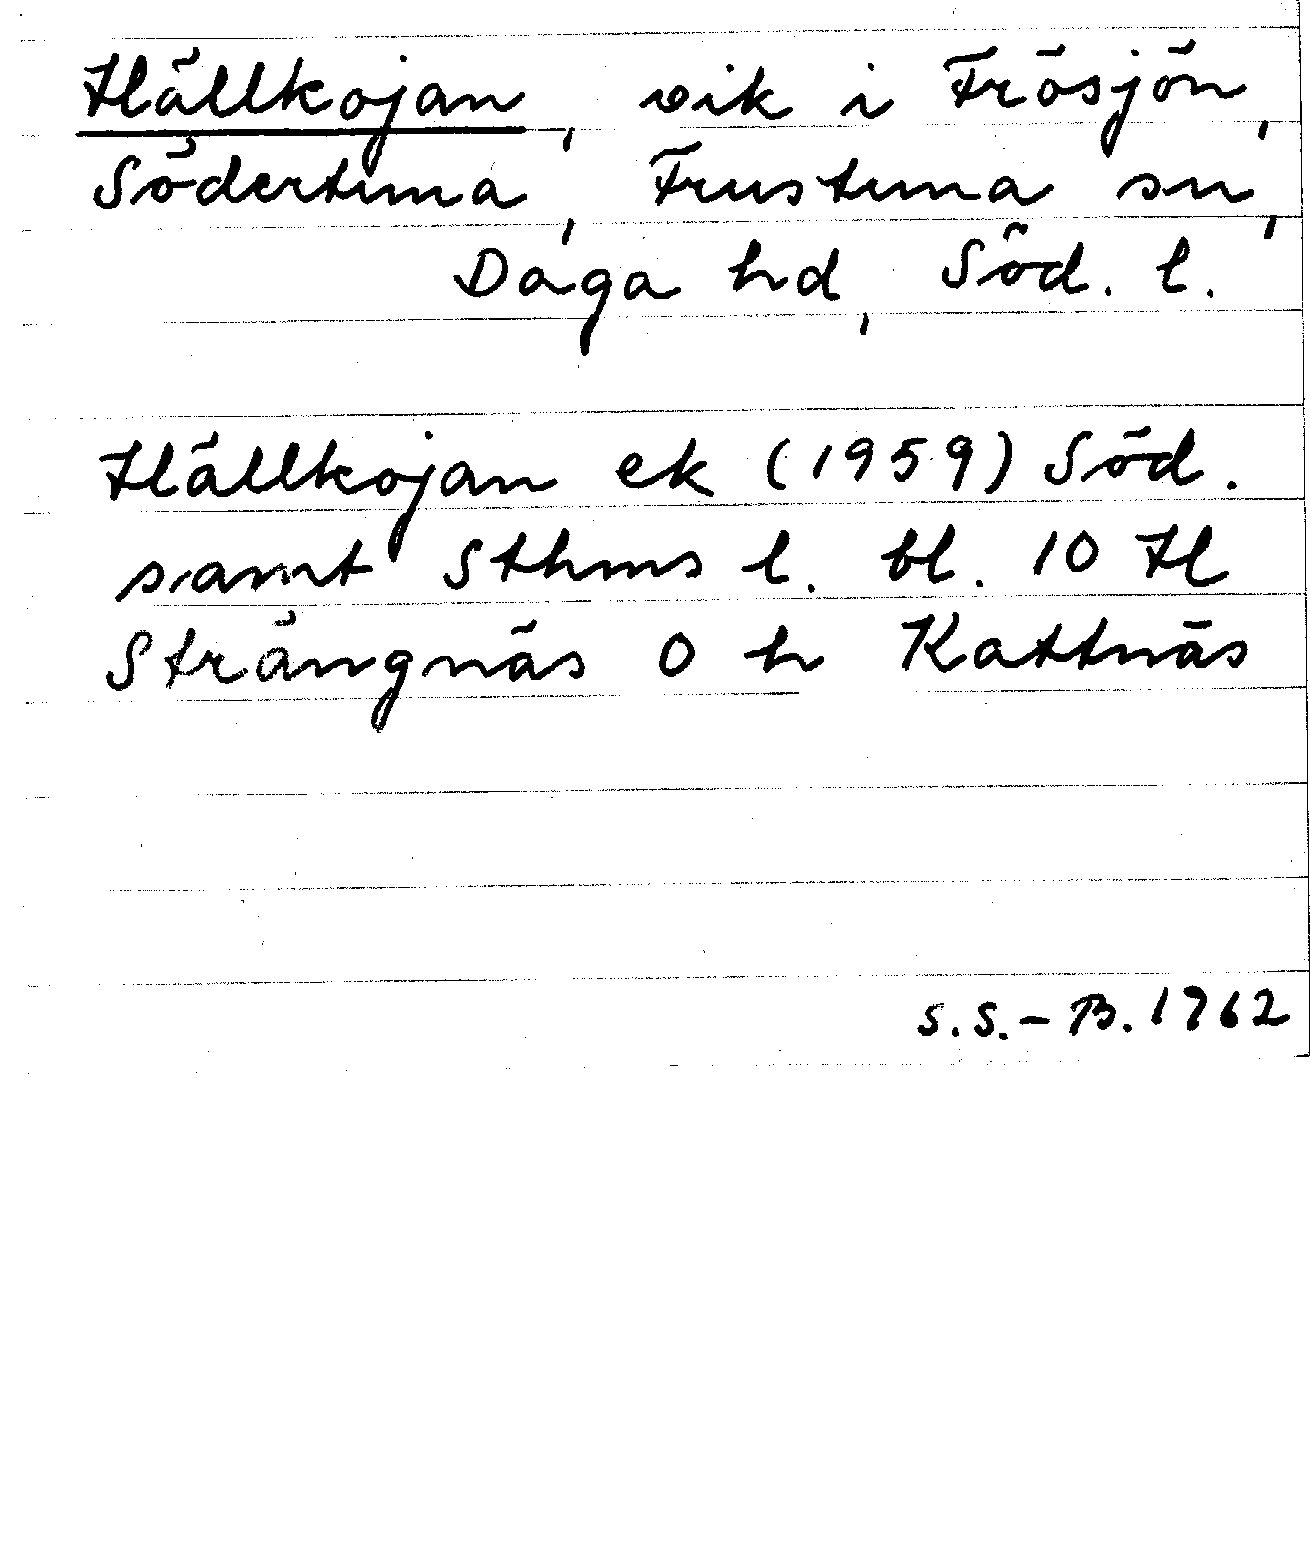 Hällkojan, vik i Frösjön,
Södertuna, Frustuna sn,
Daga hd, Söd. l.
Hällkojan ek (1959) Söd.
samt Sthms l. bl. 10 H
Strängnäs O h Kattnäs
S.S.-B. 1962